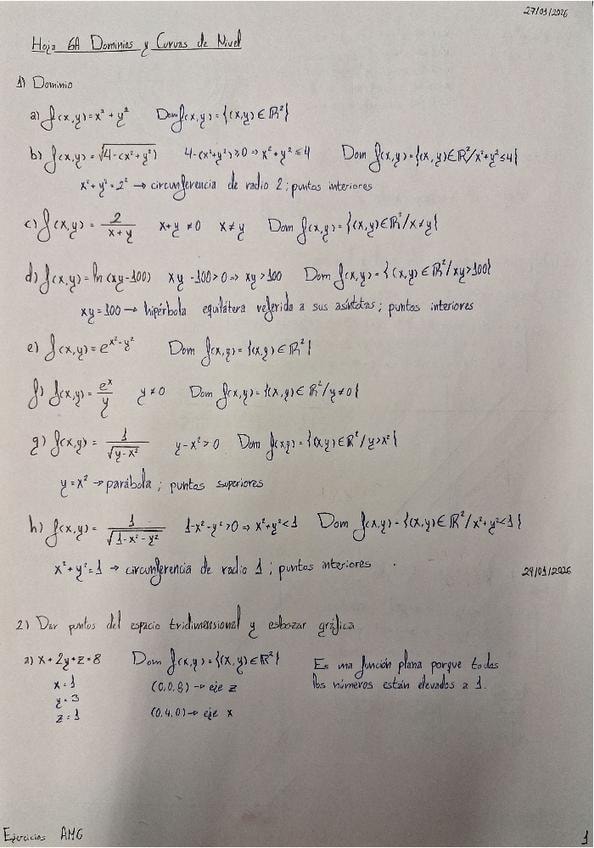 27/01/2026
Hoja 6A Dominios y Curvas de Nivel
1) Dominio
a) f(x,y)=x²+y² Dom f(x,y)={(x,y)∈ℝ²}
b) f(x,y)=√(4-(x²+y²)) 4-(x²+y²)≥0 ⇒ x²+y²≤4 Dom f(x,y)={(x,y)∈ℝ²/x²+y²≤4}
x²+y²=2² → circunferencia de radio 2; puntos interiores
c) f(x,y)= 2/(x+y) x+y≠0 x≠y Dom f(x,y)={(x,y)∈ℝ²/x≠y}
d) f(x,y)=ln(xy-100) xy-100>0 ⇒ xy>100 Dom f(x,y)={(x,y)∈ℝ²/xy>100}
xy=100 → hipérbola equilátera referida a sus asíntotas; puntos interiores
e) f(x,y)=e^(x²-y²) Dom f(x,y)={(x,y)∈ℝ²}
f) f(x,y)= e^x/y y≠0 Dom f(x,y)={(x,y)∈ℝ²/y≠0}
g) f(x,y)= 1/√(y-x²) y-x²>0 Dom f(x,y)={(x,y)∈ℝ²/y>x²}
y=x² → parábola; puntos superiores
h) f(x,y)= 1/√(1-x²-y²) 1-x²-y²>0 ⇒ x²+y²<1 Dom f(x,y)={(x,y)∈ℝ²/x²+y²<1}
x²+y²=1 → circunferencia de radio 1; puntos interiores
29/01/2026
2) Dar puntos del espacio tridimensional y esbozar gráfica
a) x+2y+z=8 Dom f(x,y)={(x,y)∈ℝ²} Es una función plana porque todos
x=1 (0,0,8) → eje z los números están elevados a 1.
y=3
z=1 (0,4,0) → eje x
Ejercicios AMG 1